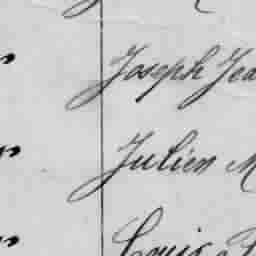 Joseph Jea
Julien M
Louis